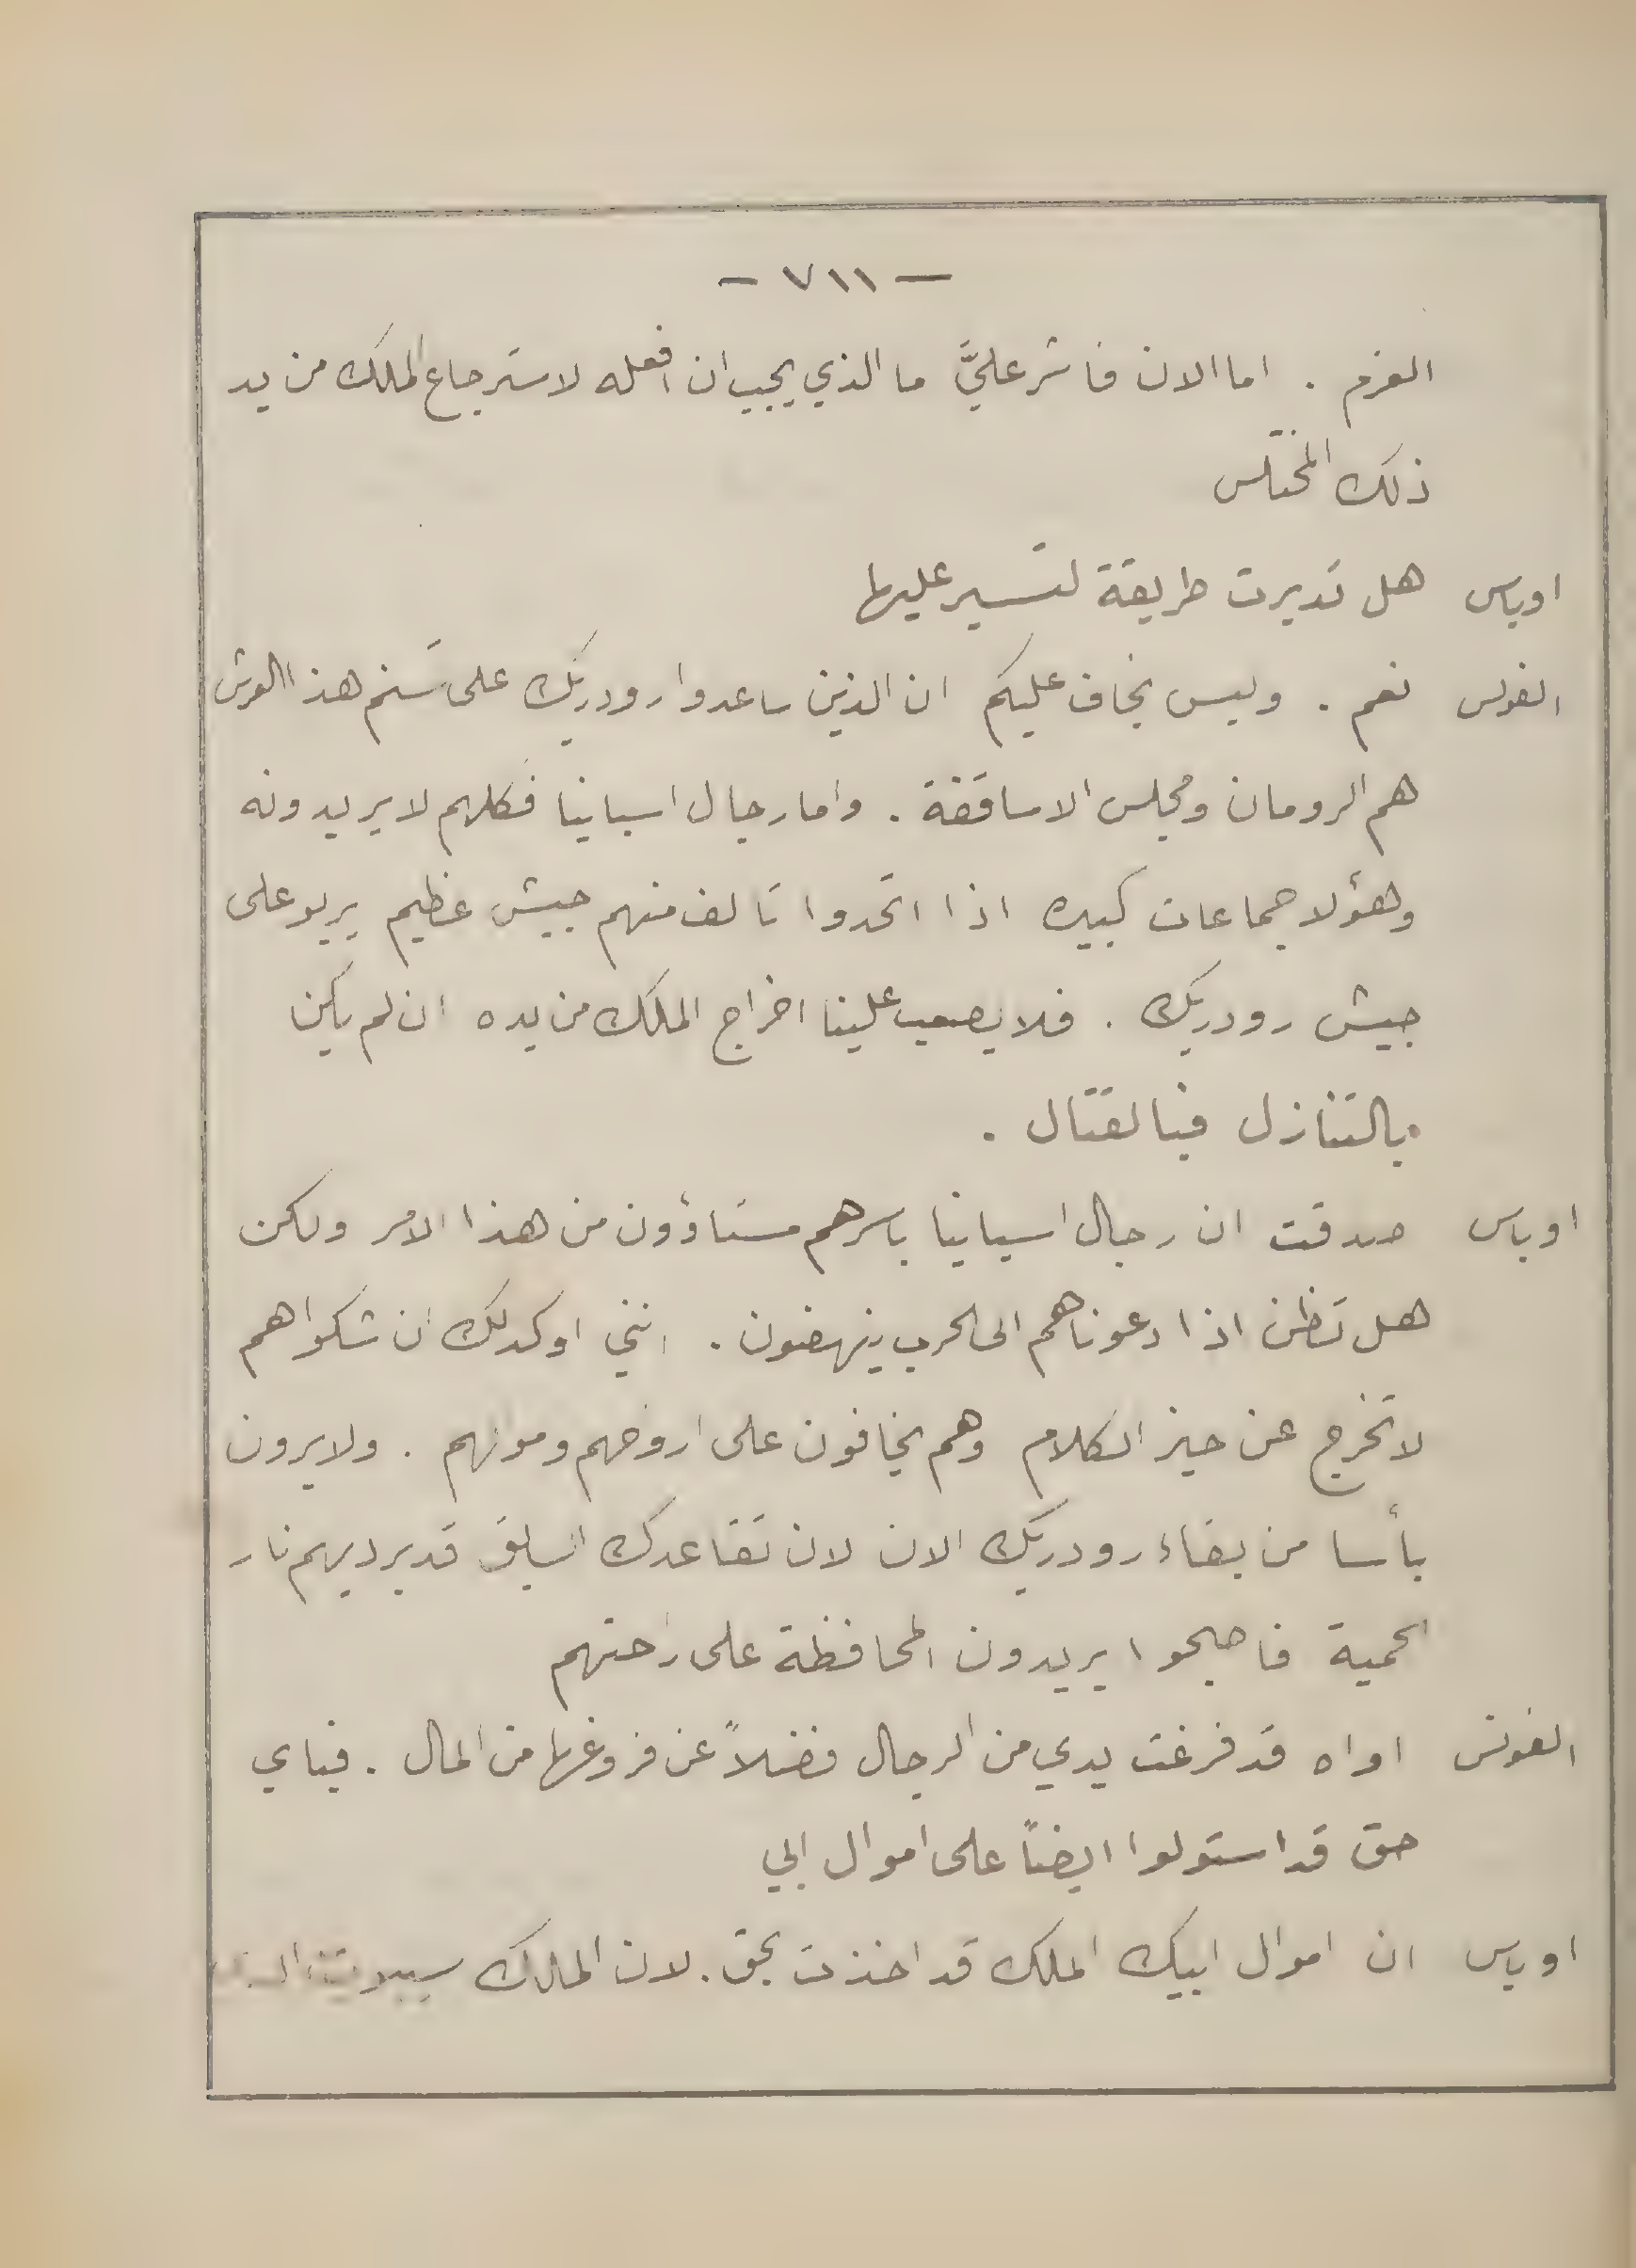 — ٧١١ —
العزم . اما الان فاشر عليَّ ما الذي يجب ان افعله لاسترجاع الملك من يد
ذلك المختلس
اوباس هل تدبرت طريقة لتسير عليها
الفونس نعم . وليس بخاف عليكم ان الذين ساعدوا رودريك على تسنم هذا العرش
هم الرومان ومجلس الاساقفة . واما رجال اسبانيا فكلهم لا يريدونه
وهؤلا جماعات كبيره اذا اتحدوا تالف منهم جيش عظيم يربو على
جيش رودريك . فلا يصعب علينا اخراج الملك من يده ان لم يكن
بالتنازل فبالقتال .
اوباس صدقت ان رجال اسبانيا باسرهم مستاؤون من هذا الامر ولكن
هل تظن اذا دعوناهم الى الحرب ينهضون . انني اوكد لك ان شكواهم
لا تخرج عن حيز الكلام وهم يخافون على اروحهم ومونهم . ولا يرون
بأسا من بقاء رودريك الان لان تقاعدك السابق قد برد بهم نار
الحمية فاصبحوا يريدون المحافظة على راحتهم
الفونس اواه قد فرغت يدي من الرجال فضلاً عن فروغها من المال . فباي
حق قد استولوا ايضاً على اموال ابي
اوباس ان اموال ابيك الملك قد اخذت بحق . لان الملك